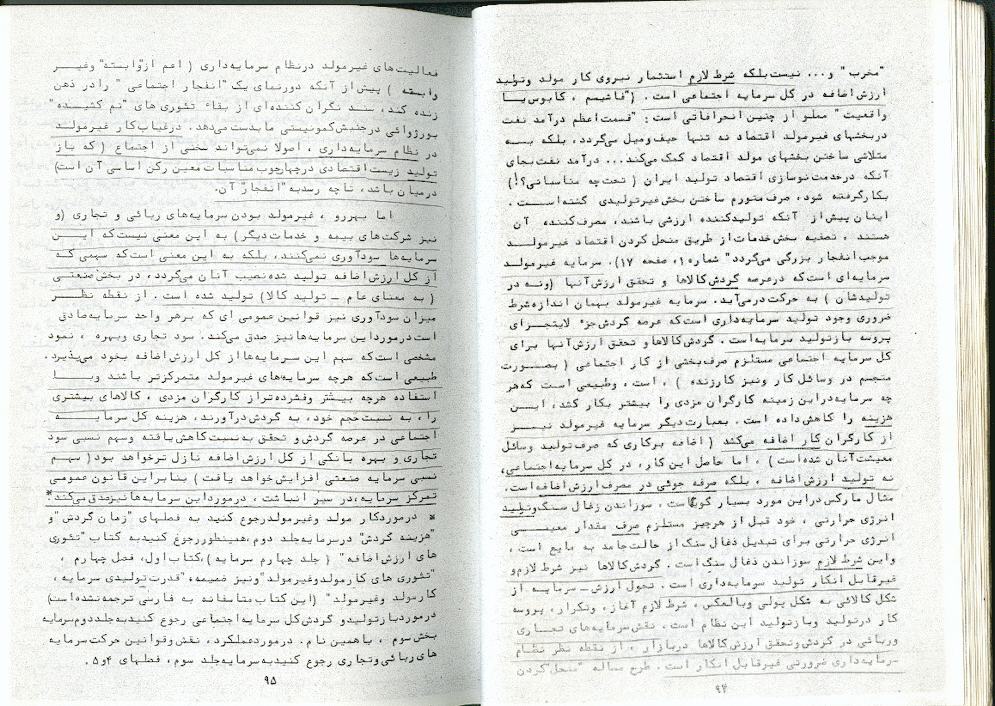 "مخرب" و... نیست بلکه شرط لازم استثمار نیروی کار مولد وتولید
ارزش اضافه در کل سرمایه اجتماعی است. ("فاشیسم ، کابوس یا
واقعیت" مملو از چنین انحرافاتی است : "قسمت اعظم درآمد نفت
دربخشهای غیرمولد اقتصاد نه تنها حیف ومیل میگردد، بلکه به
متلاشی ساختن بخشهای مولد اقتصاد کمک میکند... درآمد نفت بجای
آنکه درخدمت نوسازی اقتصاد تولید ایران (تحت چه مناسباتی؟!)
بکارگرفته شود، صرف متورم ساختن بخش غیرتولیدی گشته است.
اینان پیش از آنکه تولیدکننده ارزشی باشند، مصرف کننده آن
هستند ، تصفیه بخش خدمات از طریق منحل کردن اقتصاد غیرمولد
موجب انفجار بزرگی میگردد" شماره ۱، صفحه ۱۷). سرمایه غیرمولد
سرمایه ای است که درعرصه گردش کالاها و تحقق ارزش آنها (ونه در
تولیدشان ) به حرکت درمی‌آید. سرمایه غیرمولد بهمان اندازه شرط
ضروری وجود تولید سرمایه‌داری است که عرصه گردش جزء لایتجزای
پروسه بازتولید سرمایه است. گردش کالاها و تحقق ارزش آنها برای
کل سرمایه اجتماعی مستلزم صرف بخشی از کار اجتماعی ( بصورت
متجسم در وسائل کار ونیز کارزنده ) ، است ، وطبیعی است که هر
چه سرمایه دراین زمینه کارگران مزدی را بیشتر بکار کشد، این
هزینه را کاهش داده است. بعبارت دیگر سرمایه غیرمولد نیز
از کارگران کار اضافه میکشد ( اضافه برکاری که صرف تولید وسائل
معیشت آنان شده است) ، اما حاصل این کار، در کل سرمایه اجتماعی،
نه تولید ارزش اضافه ، بلکه صرفه جوئی در مصرف ارزش اضافه است.
مثال مارکس دراین مورد بسیار گویاست ، سوزاندن زغال سنگ وتولید
انرژی حرارتی ، خود قبل از هرچیز مستلزم صرف مقدار معینی
انرژی حرارتی برای تبدیل ذغال سنگ از حالت جامد به مایع است ،
واین شرط لازم سوزاندن ذغال سنگ است. گردش کالاها نیز شرط لازم و
غیرقابل انکار تولید سرمایه‌داری است. تحول ارزش - سرمایه از
شکل کالائی به شکل پولی وبالعکس ، شرط لازم آغاز، وتکرار، پروسه
کار درتولید وبازتولید این نظام است ، نقش سرمایه های تجاری
وربائی در گردش وتحقق ارزش کالاها دربازار ، از نقطه نظر نظام
سرمایه‌داری ضرورتی غیرقابل انکار است. طرح مساله "منحل کردن
۹۴
فعالیت های غیرمولد درنظام سرمایه‌داری ( اعم از "وابسته" وغیر
وابسته ) پیش از آنکه دورنمای یک "انفجار اجتماعی " را در ذهن
زنده کند، سند نگران کننده ای از بقاء تئوری های "نم کشیده"
بورژوائی درجنبش کمونیستی ما بدست میدهد. درغیاب کار غیرمولد
در نظام سرمایه‌داری ، اصولا نمی‌تواند سخنی از اجتماع ( که باز
تولید زیست اقتصادی درچهارچوب مناسبات معین رکن اساسی آن است)
درمیان باشد، تا چه رسد به "انفجار" آن.
اما بهررو ، غیرمولد بودن سرمایه های ربائی و تجاری (و
نیز شرکت های بیمه و خدمات دیگر) به این معنی نیست که این
سرمایه‌ها سودآوری نمی‌کنند، بلکه به این معنی است که سهمی که
از کل ارزش اضافه تولید شده نصیب آنان میگردد، در بخش صنعتی
( به معنای عام - تولید کالا) تولید شده است. از نقطه نظر
میزان سودآوری نیز قوانین عمومی ای که برهر واحد سرمایه صادق
است درمورد این سرمایه‌ها نیز صدق میکند. سود تجاری وبهره ، نمود
مشخصی است که سهم این سرمایه‌ها از کل ارزش اضافه بخود می‌پذیرد.
طبیعی است که هرچه سرمایه‌های غیرمولد متمرکزتر باشند وبا
استفاده هرچه بیشتر وفشرده تر از کارگران مزدی ، کالاهای بیشتری
را ، به نسبت حجم خود، به گردش درآورند، هزینه کل سرمایه
اجتماعی در عرصه گردش و تحقق به نسبت کاهش یافته وسهم نسبی سود
تجاری و بهره بانکی از کل ارزش اضافه نازل ترخواهد بود (سهم
نسبی سرمایه صنعتی افزایش خواهد یافت ) بنابراین قانون عمومی
تمرکز سرمایه، در سیر انباشت ، درمورد این سرمایه‌ها نیز صدق میکند.*
* درمورد کار مولد وغیرمولد رجوع کنید به فصلهای "زمان گردش" و
"هزینه گردش" درسرمایه جلد دوم ،همینطور رجوع کنید به کتاب "تئوری
های ارزش اضافه" ( جلد چهارم سرمایه )،کتاب اول، فصل چهارم ،
"تئوری های کار مولد وغیرمولد" ونیز ضمیمه، "قدرت تولیدی سرمایه ،
کار مولد وغیرمولد" (این کتاب متاسفانه به فارسی ترجمه نشده است)
درمورد بازتولید و گردش کل سرمایه اجتماعی رجوع کنید به جلد دوم سرمایه
بخش سوم ، باهمین نام. درمورد عملکرد، نقش وقوانین حرکت سرمایه
های ربائی وتجاری رجوع کنید به سرمایه جلد سوم، فصلهای ۴و۵.
۹۵